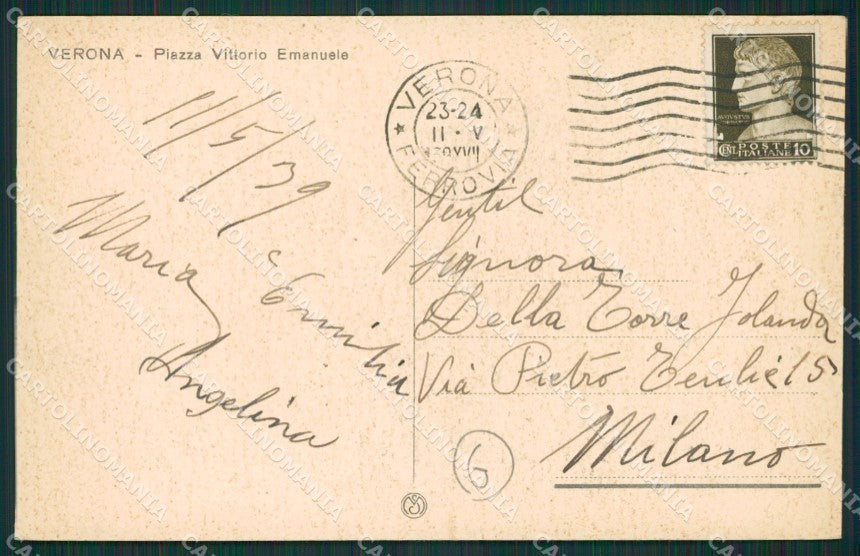 VERONA - Piazza Vittorio Emanuele
VERONA
23-24
11·V
FERROVIA
AVGVSTVS
CENT. POSTE ITALIANE 10
11/5/39
Maria
Emilia
Angelina
Gentil
Signora
Della Torre Jolanda
Via Pietro 15
Milano
G
CARTOLINOMANIA